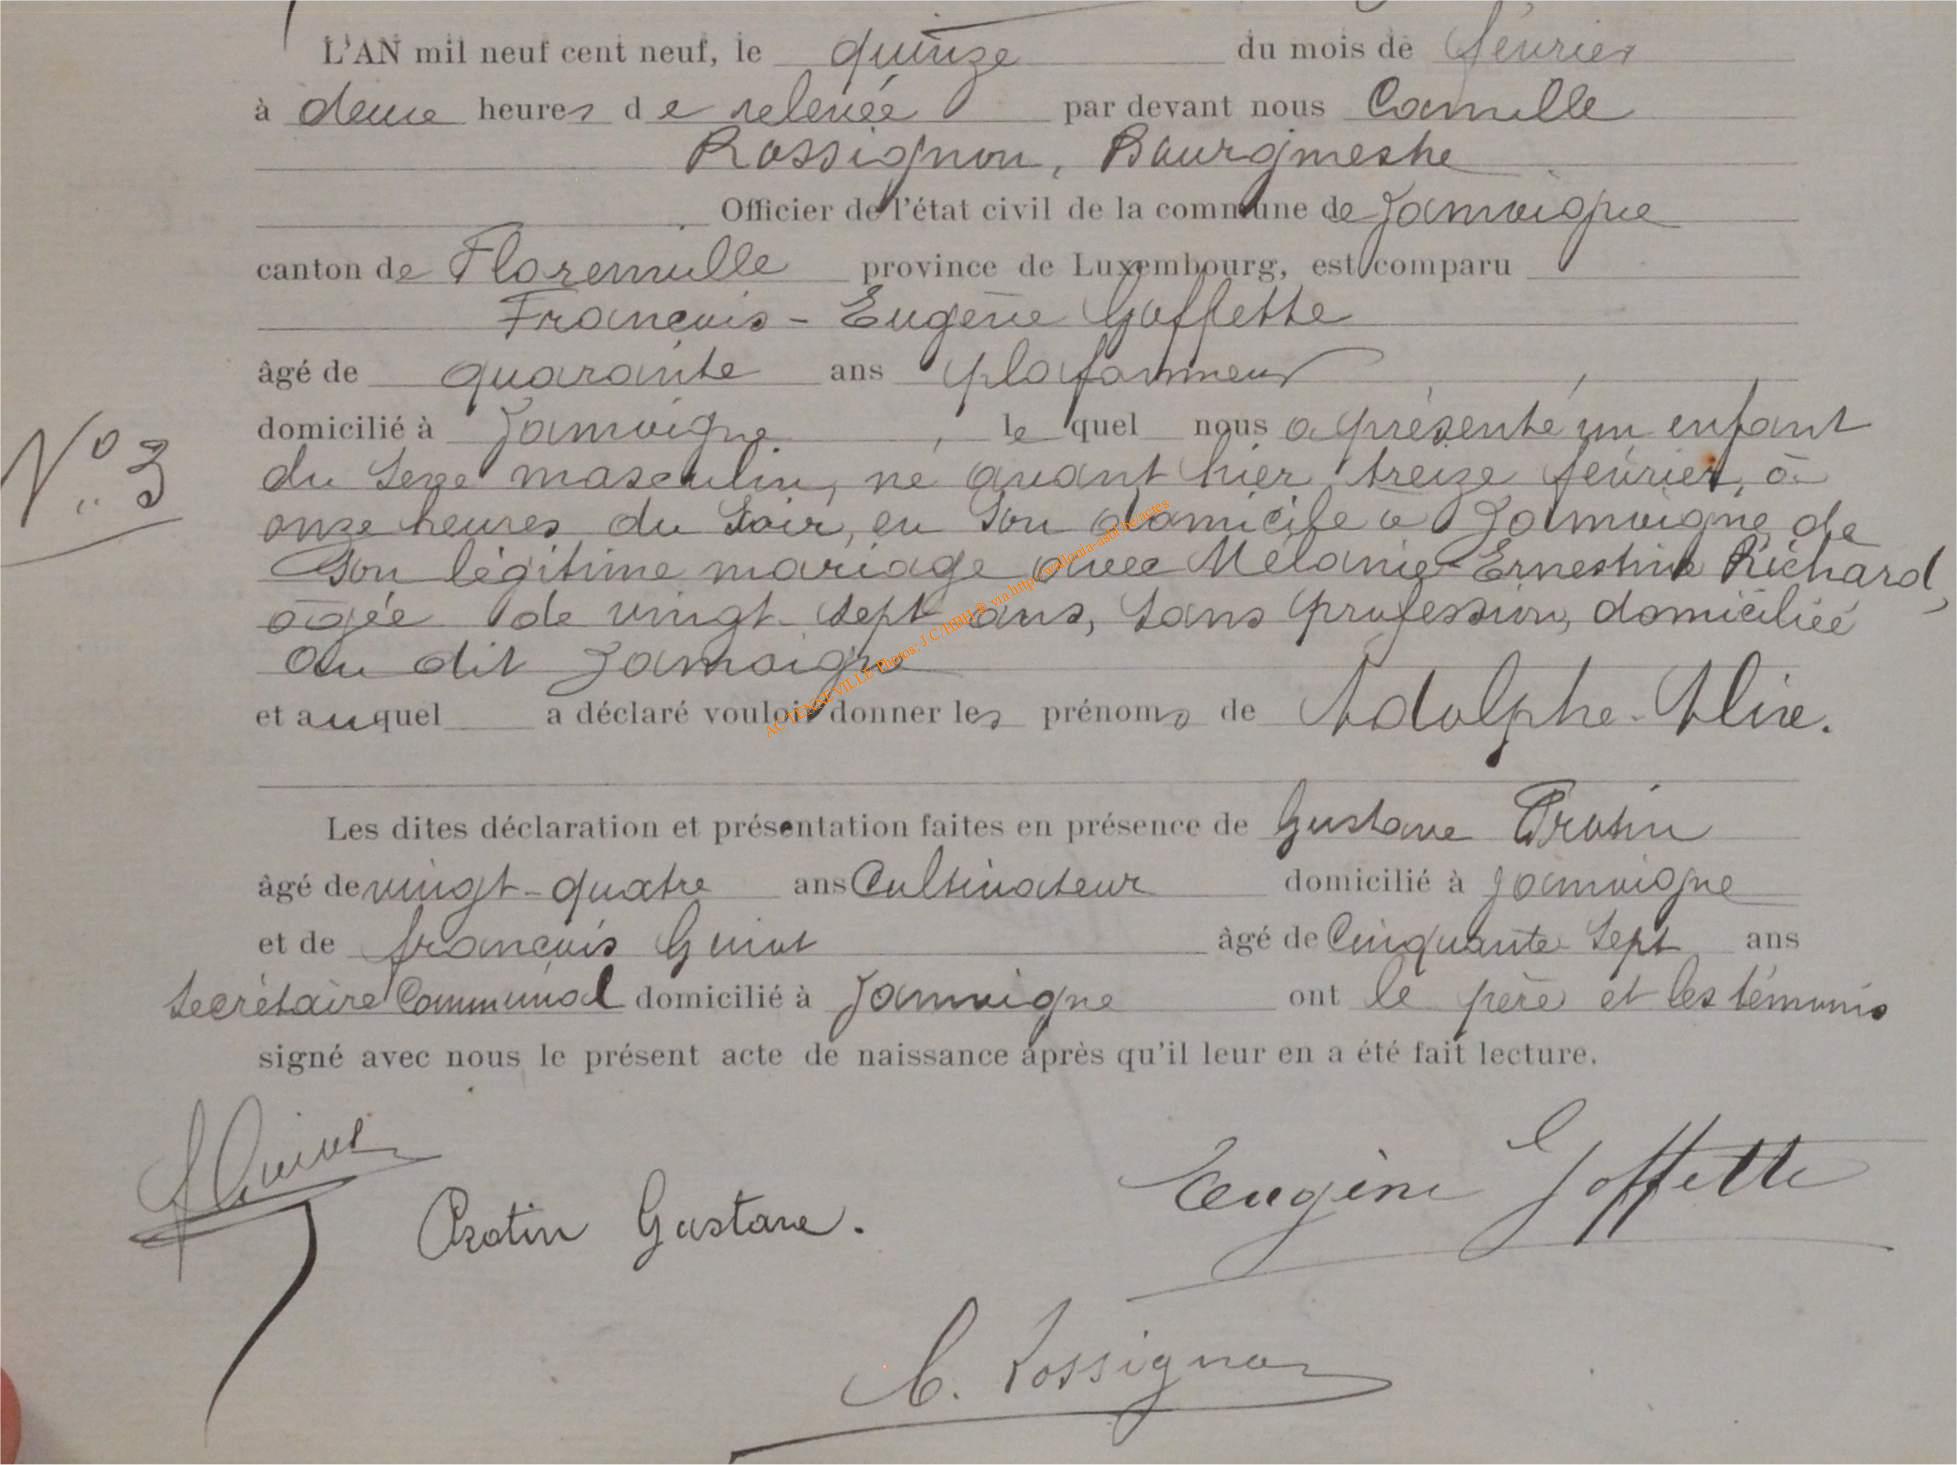 L'AN mil neuf cent neuf, le quinze du mois de février
à deux heures de relevée par devant nous Camille
Rossignon, Bourgmestre
Officier de l'état civil de la commune de Jamoigne
canton de Florenville province de Luxembourg, est comparu
François - Eugène Goffette
âgé de quarante ans plafonneur,
domicilié à Jamoigne, le quel nous a présenté un enfant
N° 3
du sexe masculin, né avant hier treize février, à
onze heures du soir, en son domicile à Jamoigne, de
son légitime mariage avec Mélanie-Ernestine Richard,
âgée de vingt-sept ans, sans profession, domiciliée
au dit Jamoigne
et auquel a déclaré vouloir donner les prénoms de Adolphe-Alix.
Les dites déclaration et présentation faites en présence de Gustave Protin
âgé de vingt-quatre ans Cultivateur domicilié à Jamoigne
et de françois Guiot âgé de Cinquante Sept ans
Secrétaire Communal domicilié à Jamoigne ont le père et les témoins
signé avec nous le présent acte de naissance après qu'il leur en a été fait lecture.
f Guiot
Protin Gustave.
Eugène Goffette
C. Rossignon